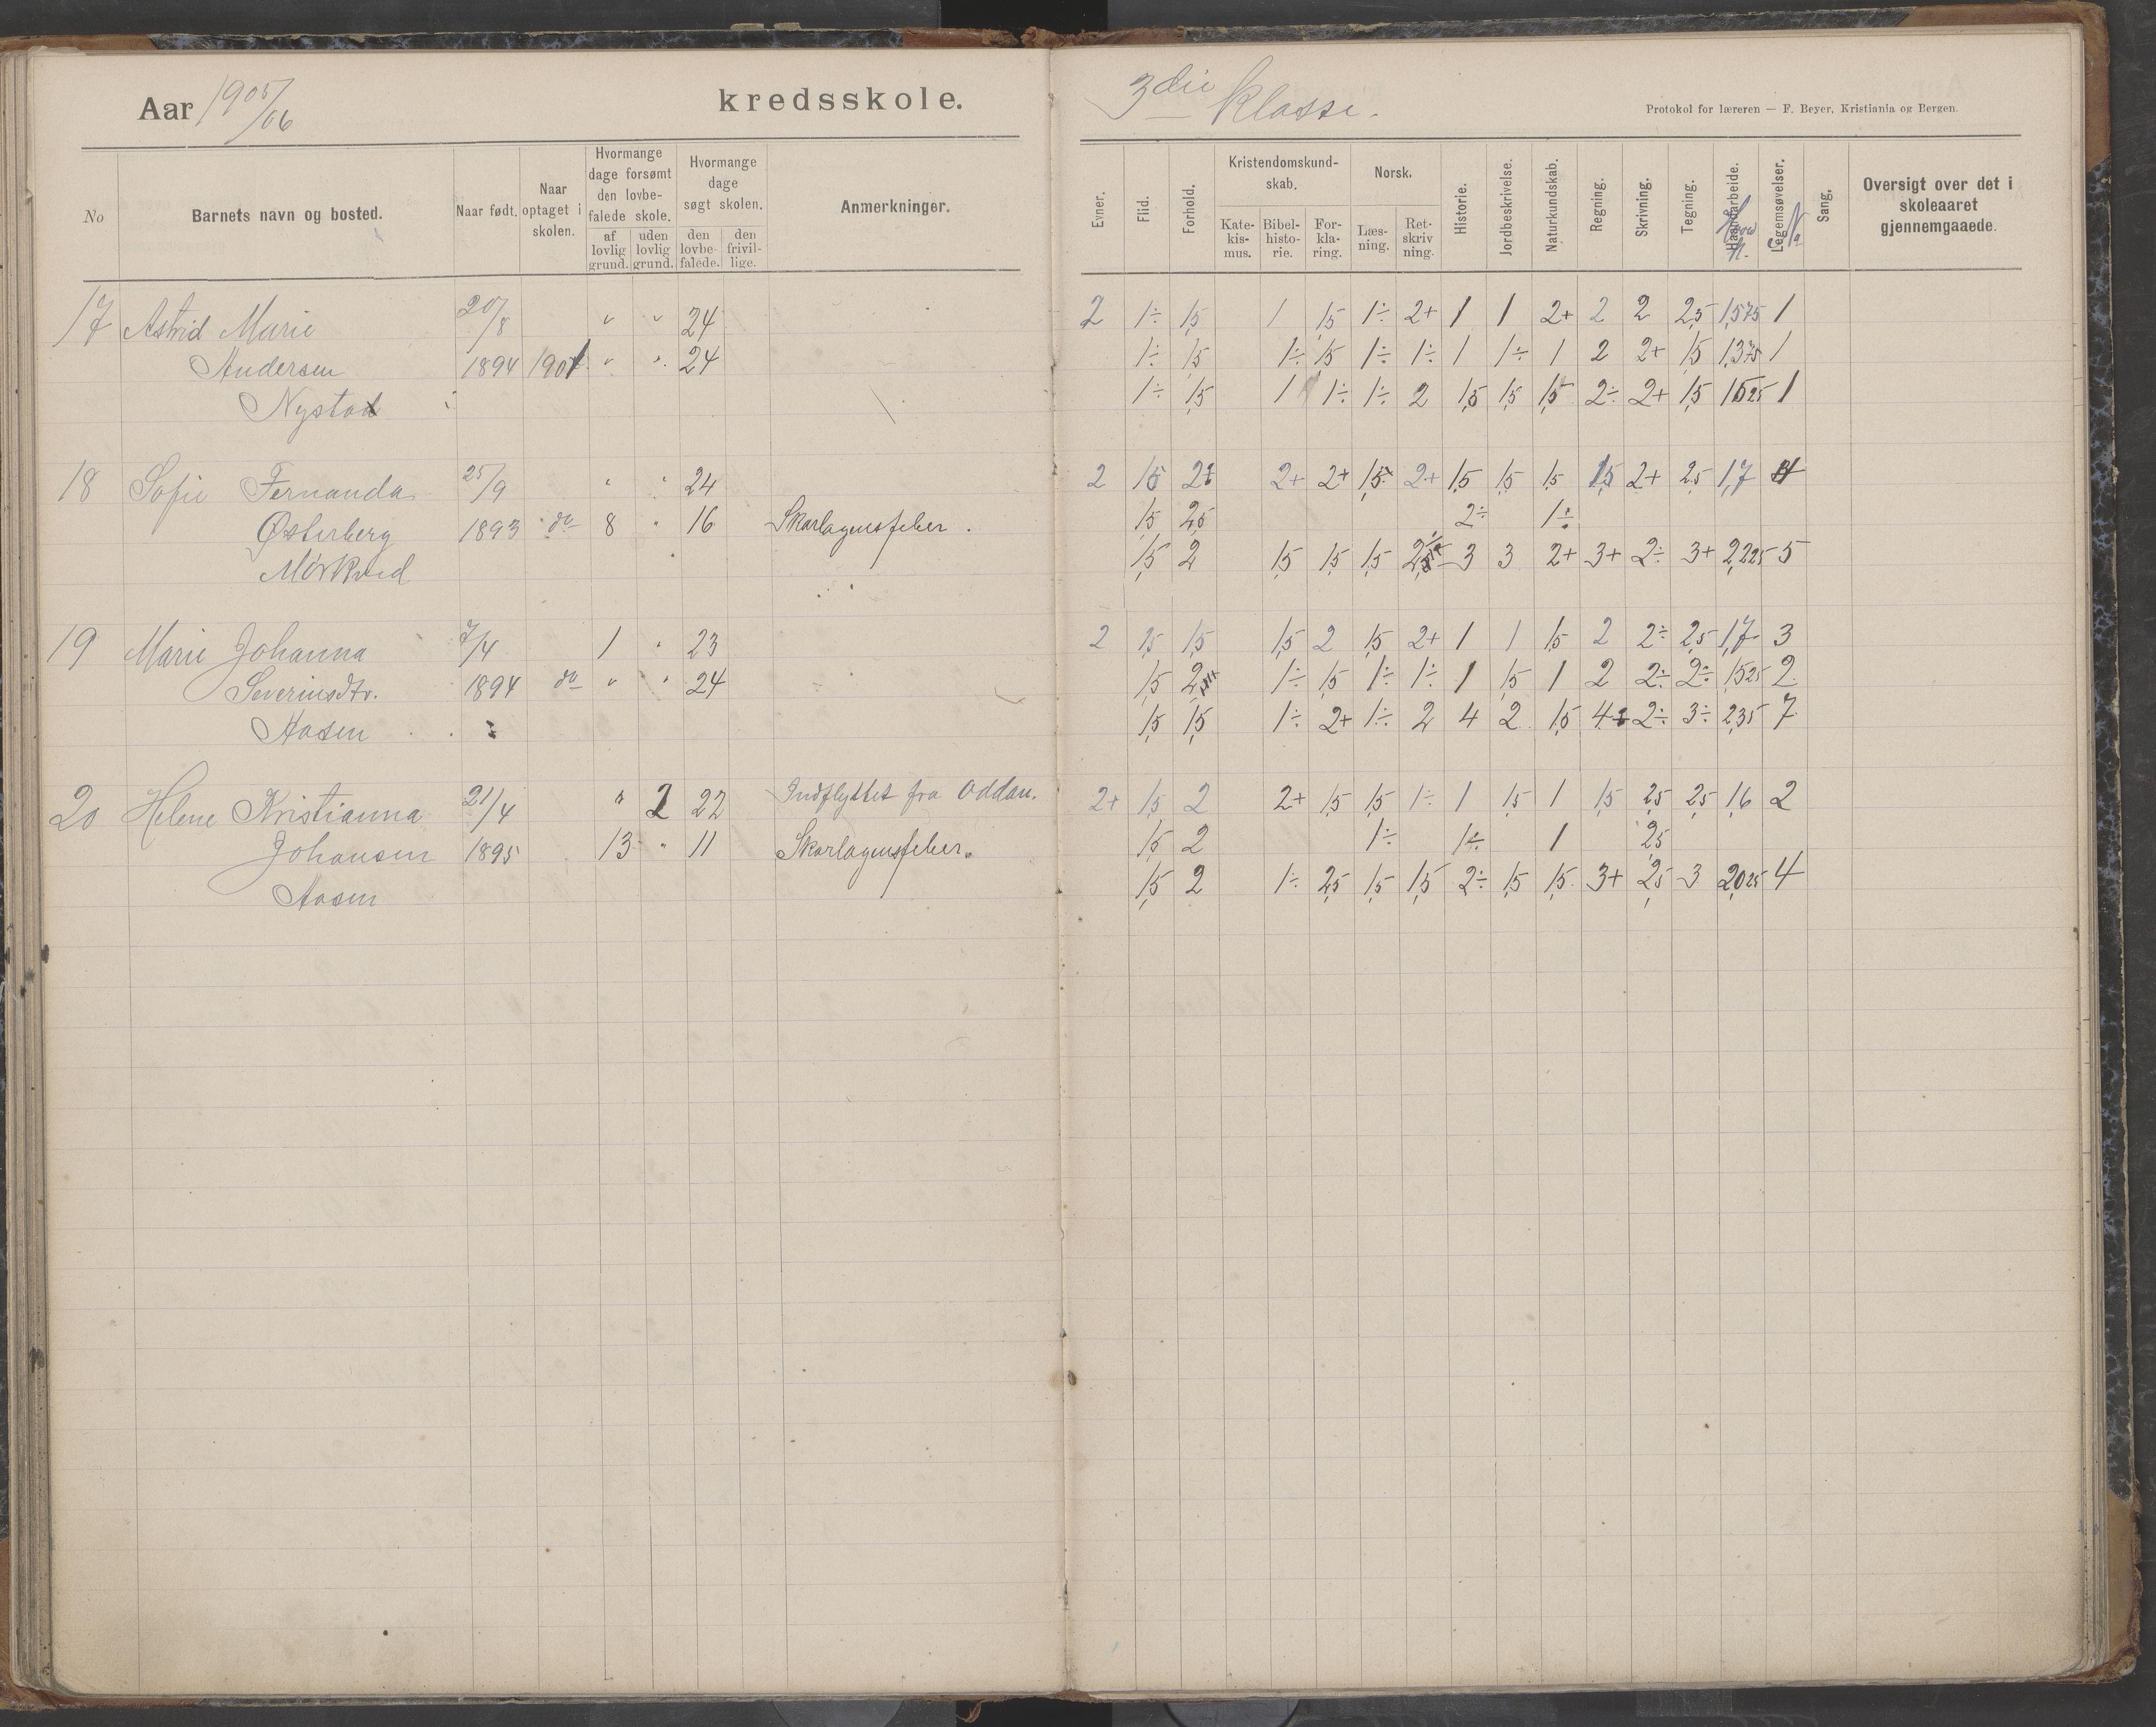 Aar 1905/06 kredsskole. 3die Klasse.
Protokol for læreren — F. Beyer, Kristiania og Bergen.
No
Barnets navn og bosted.
Naar født.
Naar optaget i skolen.
Hvormange dage forsømt den lovbefalede skole.
af lovlig grund.
uden lovlig grund.
Hvormange dage søgt skolen.
den lovbefalede.
den frivillige.
Anmerkninger.
Evner.
Flid.
Forhold.
Kristendomskundskab.
Katekismus.
Bibelhistorie.
Forklaring.
Norsk.
Læsning.
Retskrivning.
Historie.
Jordbeskrivelse.
Naturkundskab.
Regning.
Skrivning.
Tegning.
Haandarbeide.
Legemsøvelser.
Sang.
Oversigt over det i skoleaaret gjennemgaaede.
17 Astrid Marie 20/8 " " 24 2 1÷ 1,5 1 1,5 1÷ 2+ 1 1 2+ 2 2 2,5 1,575 1
Andersen 1894 1901 " " 24 1÷ 1,5 1÷ 1,5 1÷ 1÷ 1 1÷ 1 2 2+ 1,5 1,375 1
Nystad 1÷ 1,5 1 1÷ 1÷ 2 1,5 1,5 1,5 2÷ 2+ 1,5 1,525 1
18 Sofie Fernanda 25/9 " " 24 2 1,5 2+ 2+ 2+ 1,5 2+ 1,5 1,5 1,5 1,5 2+ 2,5 1,7
Østerberg 1893 do 8 " 16 Skarlagensfeber. 1,5 2,5 2÷ 1÷
Mörkved 1,5 2 1,5 1,5 1,5 3 3 2+ 3+ 2÷ 3+ 2,225 5
19 Marie Johanna 7/4 1 " 23 2 1,5 1,5 1,5 2 1,5 2+ 1 1 1,5 2 2÷ 2,5 1,7 3
Severinsdtr. 1894 do " " 24 1,5 2 1÷ 1,5 1÷ 1÷ 1 1,5 1 2 2÷ 2÷ 1,525 2
Aasen 1,5 1,5 1÷ 2+ 1÷ 2 4 2 1,5 4 2÷ 3÷ 2,35 7
20 Helene Kristianna 21/4 " 2 22 Indflyttet fra Oddan. 2+ 1,5 2 2+ 1,5 1,5 1÷ 1 1,5 1 1,5 2,5 2,5 1,6 2
Johansen 1895 13 " 11 Skarlagensfeber. 1,5 2 1÷ 1÷ 1 2,5
Aasen 1,5 2 1÷ 2,5 1,5 1,5 2÷ 1,5 1,5 3+ 2,5 3 2,025 4